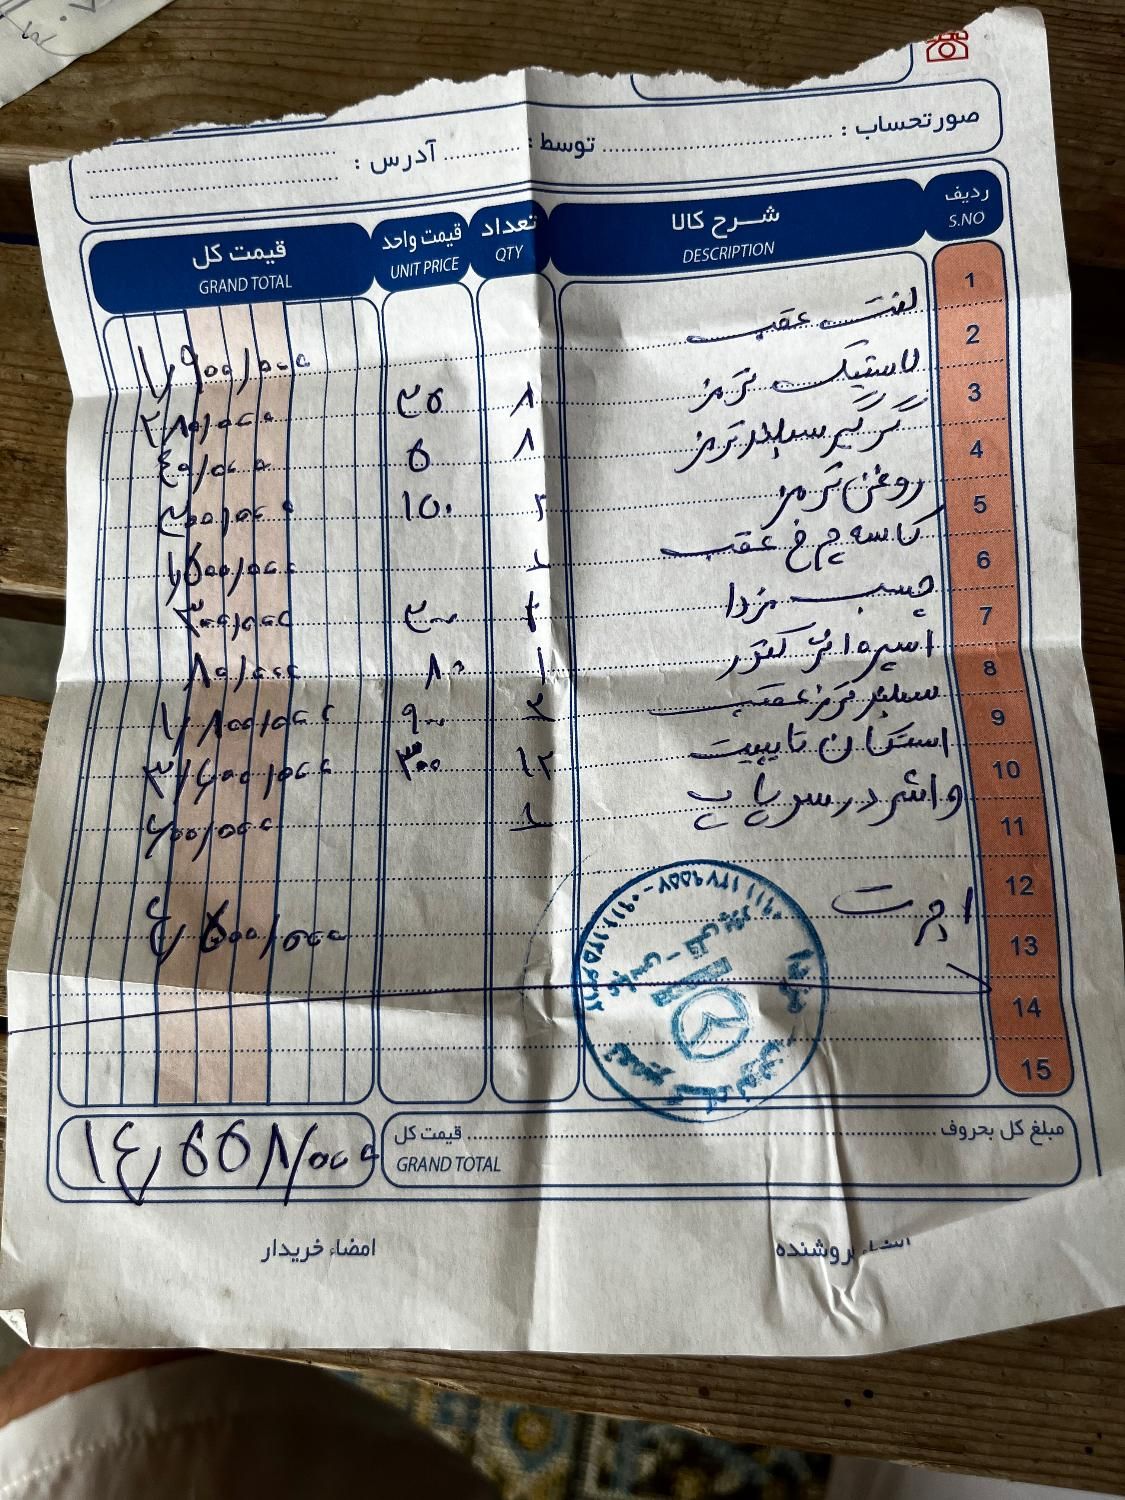 صورتحساب : توسط : آدرس :
ردیف شرح کالا تعداد قیمت واحد قیمت کل
S.NO DESCRIPTION QTY UNIT PRICE GRAND TOTAL
1 لنت عقب ۱٫۹۰۰/۰۰۰
2 لاستیک ترمز ۸ ۳۵ ۲۸۰/۰۰۰
3 گردگیر سیلندر ترمز ۸ ۵ ۴۰/۰۰۰
4 روغن ترمز ۲ ۱۵۰ ۳۰۰/۰۰۰
5 کاسه چرخ عقب ۱ ۱٫۵۰۰/۰۰۰
6 چسب مزدا ۲۰۰/۰۰۰
7 اسپره ۱ ۸۰ ۸۰/۰۰۰
8 سیلندر ترمز عقب ۲ ۹۰۰ ۱٫۸۰۰/۰۰۰
9 استکان تایپیت ۱۲ ۳۰۰ ۳/۶۰۰/۰۰۰
10 واشر در سوپاپ ۱ ۶۰۰/۰۰۰
11
12 اجرت ۴٫۵۰۰/۰۰۰
13
14
15
مبلغ کل بحروف قیمت کل ۱۴٫۵۵۸/۰۰۰
GRAND TOTAL
امضاء فروشنده امضاء خریدار